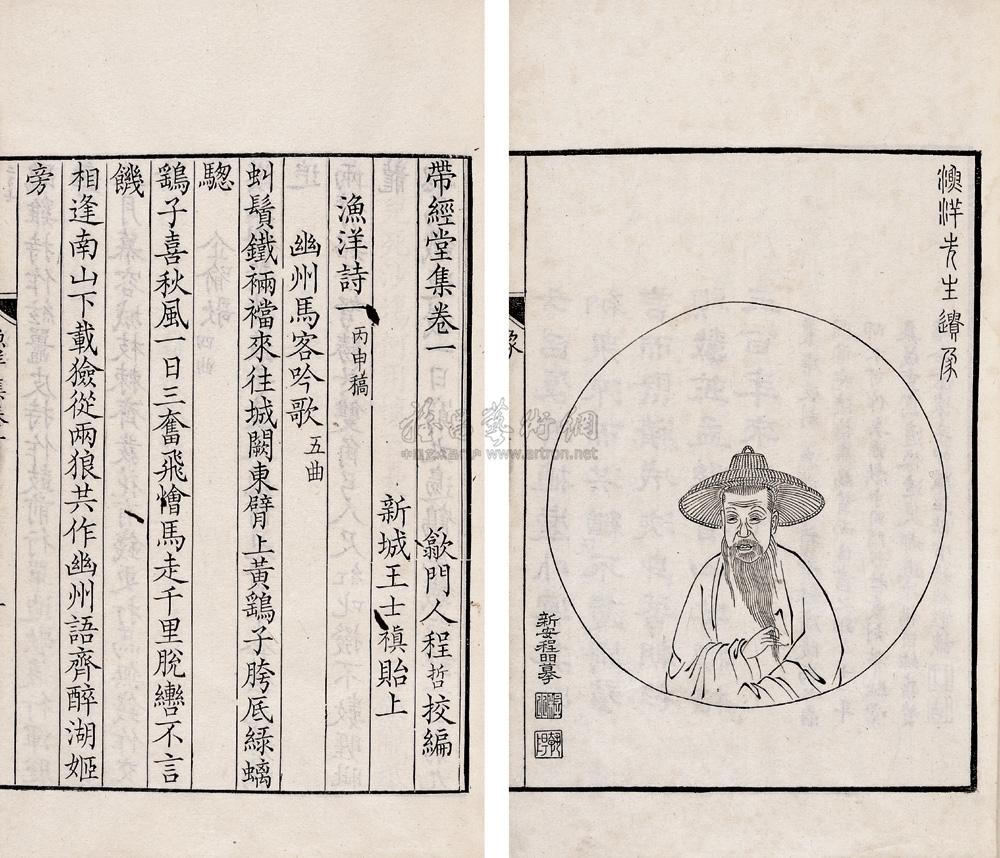 漁洋先生遺像
新安程摹
像
帶經堂集卷一
歙門人程哲挍編
漁洋詩一 丙申稿
新城王士禛貽上
幽州馬客吟歌 五曲
虯鬚鐵裲襠來往城闕東臂上黃鷂子胯底綠螭
驄
鷂子喜秋風一日三奮飛愴馬走千里脫轡不言
饑
相逢南山下載獫從兩狼共作幽州語齊醉湖姬
旁
雅昌藝術網
www.artron.net